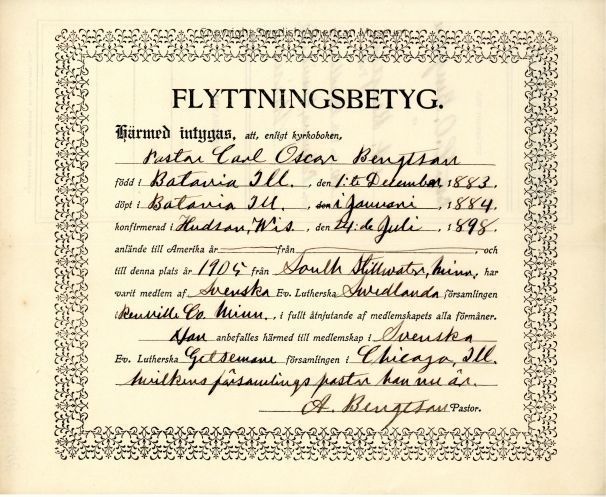 FLYTTNINGSBETYG.
Härmed intygas, att, enligt kyrkoboken,
Pastor Carl Oscar Bengtson
född i Batavia Ill. , den 1:te December 1883.
döpt i Batavia Ill. , den i Januari 1884.
konfirmerad i Hudson, Wis. , den 24:de Juli , 1898.
anlände till Amerika år från , och
till denna plats år 1905 från South Stillwater, Minn., har
varit medlem af Svenska Ev. Lutherska Swedlanda församlingen
Renville Co. Minn. , i fullt åtnjutande af medlemskapets alla förmåner.
Han anbefalles härmed till medlemskap i Svenska
Ev. Lutherska Getsemane församlingen i Chicago, Ill.
hvilkens församlings pastor han nu är.
A. Bengtson Pastor.